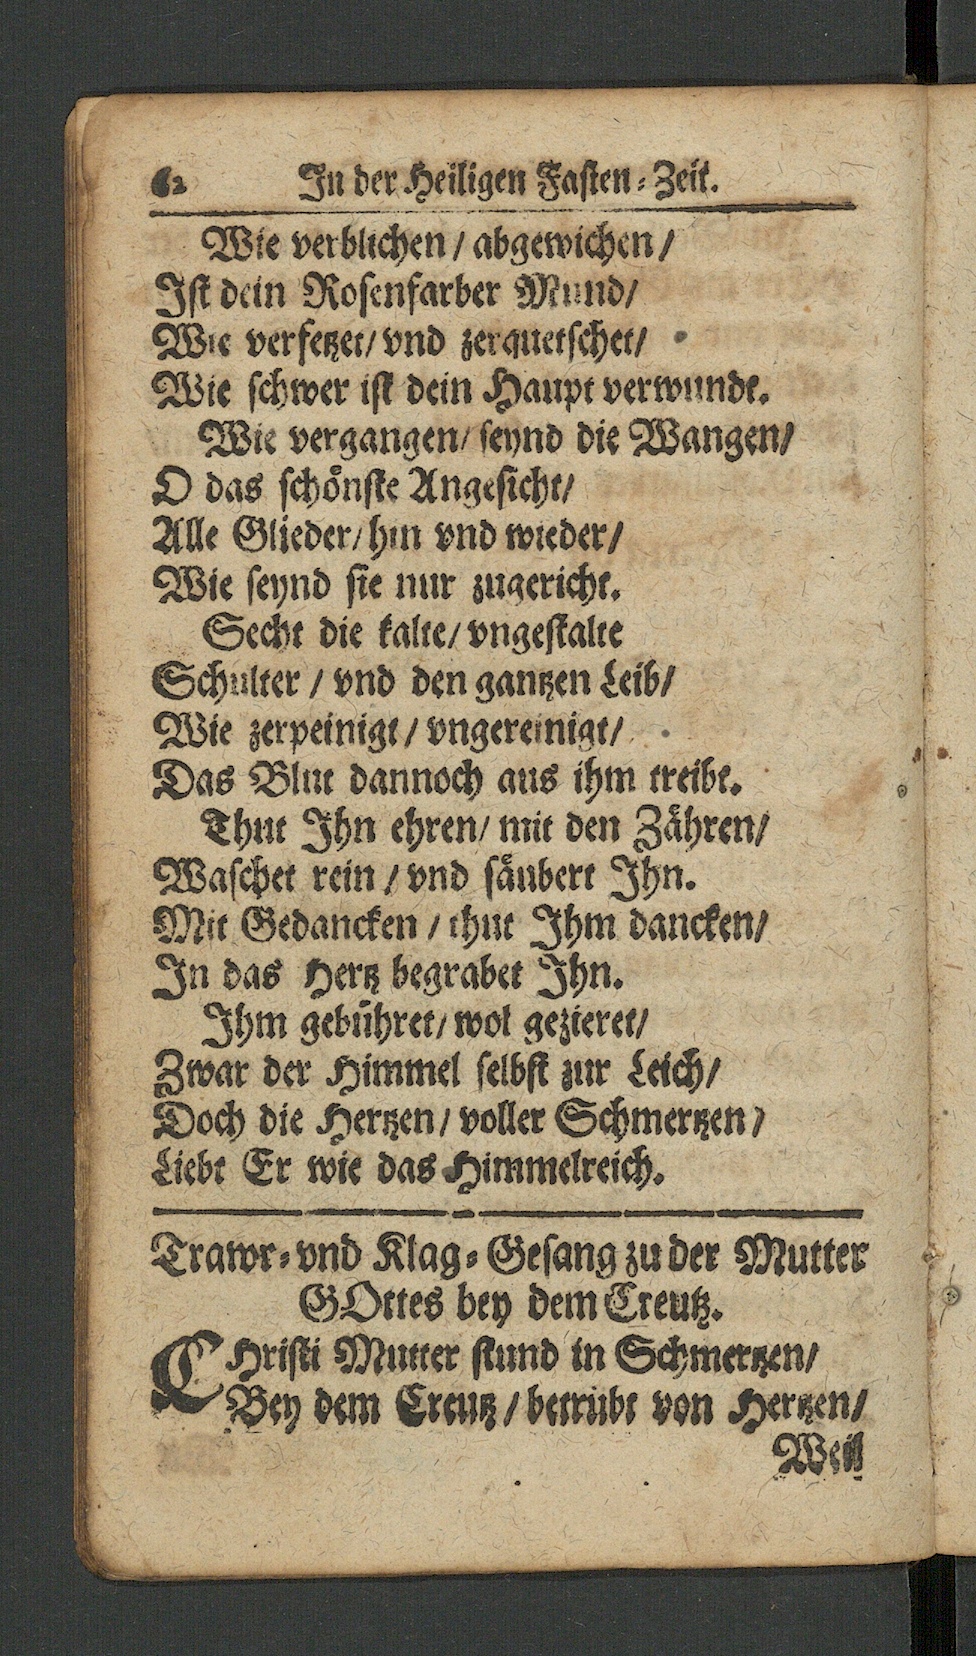 62 In der Heiligen Fasten-Zeit.
Wie verblichen / abgewichen /
Ist dein Rosenfarber Mund/
Wie verfetzet/ vnd zerquetschet/
Wie schwer ist dein Haupt verwundt.
Wie vergangen/ seynd die Wangen/
O das schönste Angesicht/
Alle Glieder/ hin vnd wieder/
Wie seynd sie nur zugericht.
Secht die kalte/ vngestalte
Schulter / vnd den gantzen Leib/
Wie zerpeinigt / vngereinigt/
Das Blut dannoch aus ihm treibt.
Thut Ihn ehren/ mit den Zähren/
Waschet rein / vnd säubert Ihn.
Mit Gedancken / thut Ihm dancken/
In das Hertz begrabet Ihn.
Ihm gebühret/ wol gezieret/
Zwar der Himmel selbst zur Leich/
Doch die Hertzen/ voller Schmertzen/
Liebt Er wie das Himmelreich.
Trawr-vnd Klag-Gesang zu der Mutter
GOttes bey dem Creutz.
CHristi Mutter stund in Schmertzen/
Bey dem Creutz / betrübt von Hertzen/
Weil